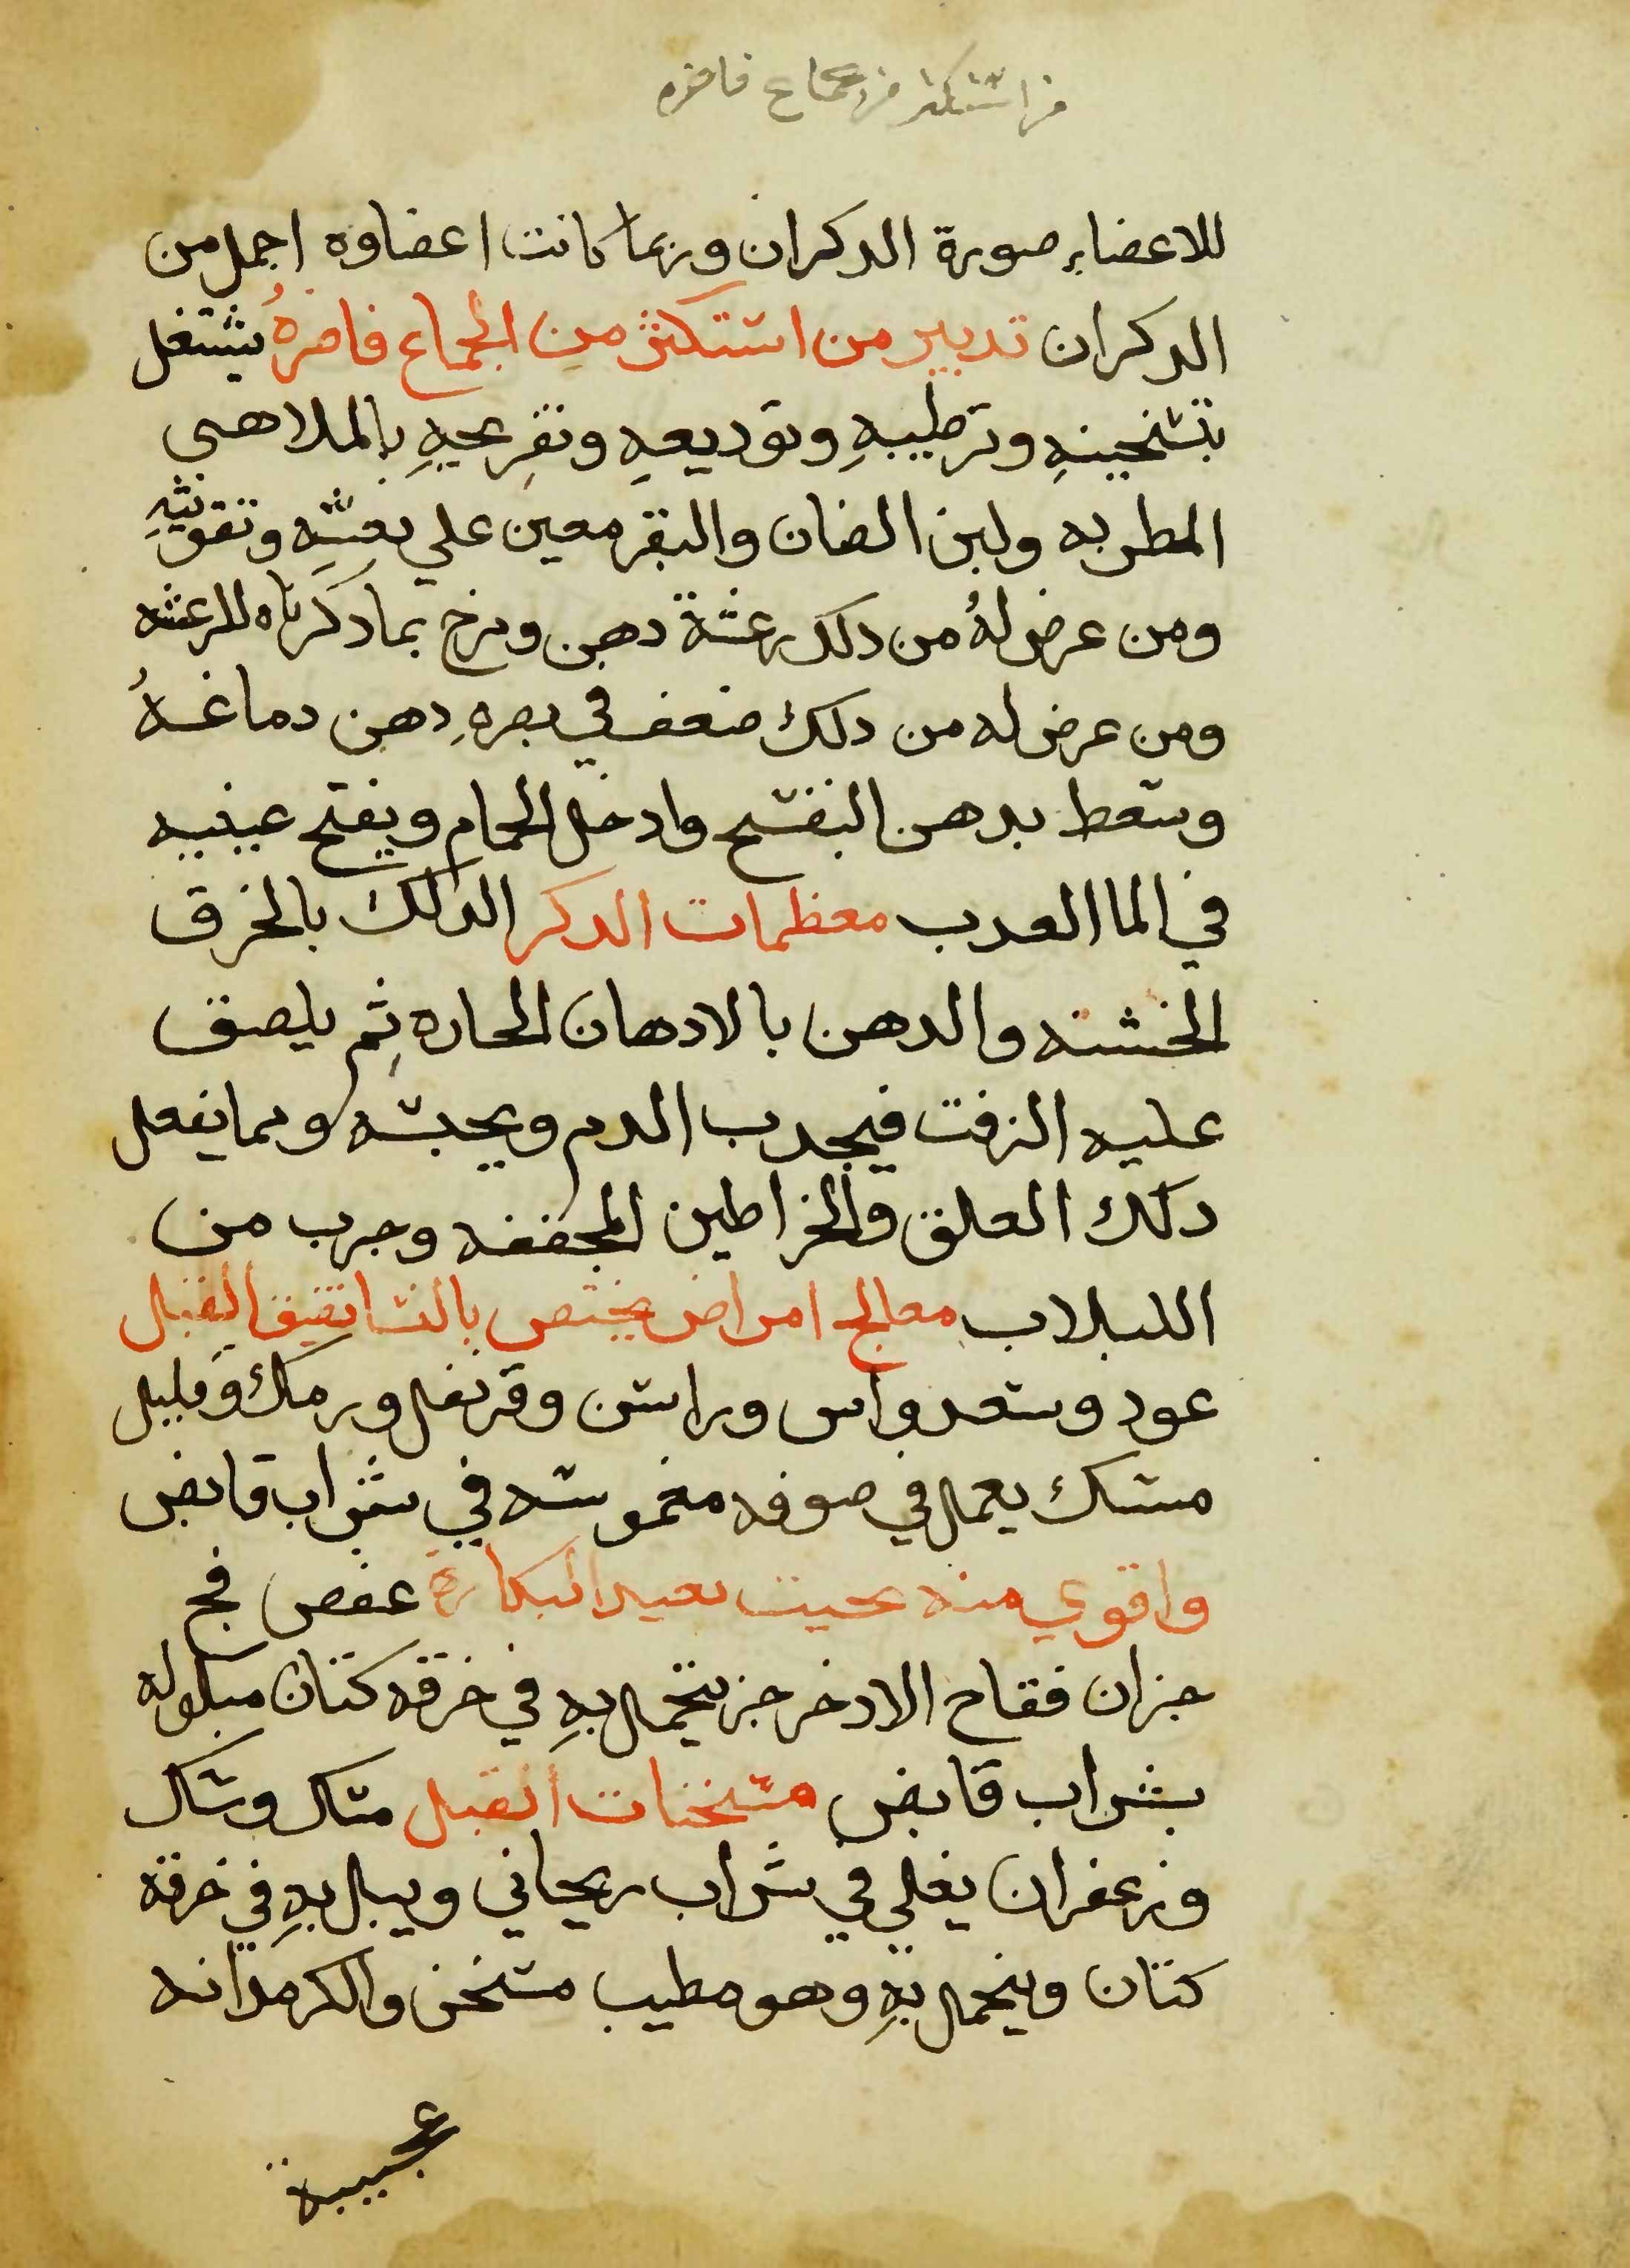 من استكثر من جماع فاضره
للاعضاء صورة الدكران وربما كانت اعضاوه اجمل من
الدكران تدبير من استكثر من الجماع فاضرهُ يشتغل
بتسخينهِ وترطيبهِ وتوديعهِ وتفريحهِ بالملاهي
المطربه ولبن الضان والبقر معين علي نعشهِ وتقويتهِ
ومن عرض لهُ من دلك رعشة دهن ومرخ بما دكرناه للرعشه
ومن عرض له من دلك ضعف في بصرهِ دهن دماغهُ
وسعط بدهن البنفسج وادخل الحمام ويفتح عينيه
في الما العدب معظمات الدكر الدلك بالخرق
الخشنه والدهن بالادهان الحاره ثم يلصق
عليه الزفت فيجدب الدم ويحبسه ومما يفعل
دلك العلق والخراطين المجففه وجرب من
اللبلاب معالج امراض يختص بالنسا تضيق القبل
عود وسعد واس وراسن وقرنفل ورمك وقليل
مسك يعمل في صوفه مغموسه في شراب قابض
واقوي منه بحيت يعيد البكارة عفص فج
جزان فقاح الادخر جز يتحمل بهِ في خرقه كتان مبلوله
بشراب قابض مسخنات القبل مسك وسك
وزعفران يغلي في شراب ريحاني ويبل بهِ في خرقة
كتان ويتحمل بهِ وهو مطيب مسخن والكرمدانه
عجيبة